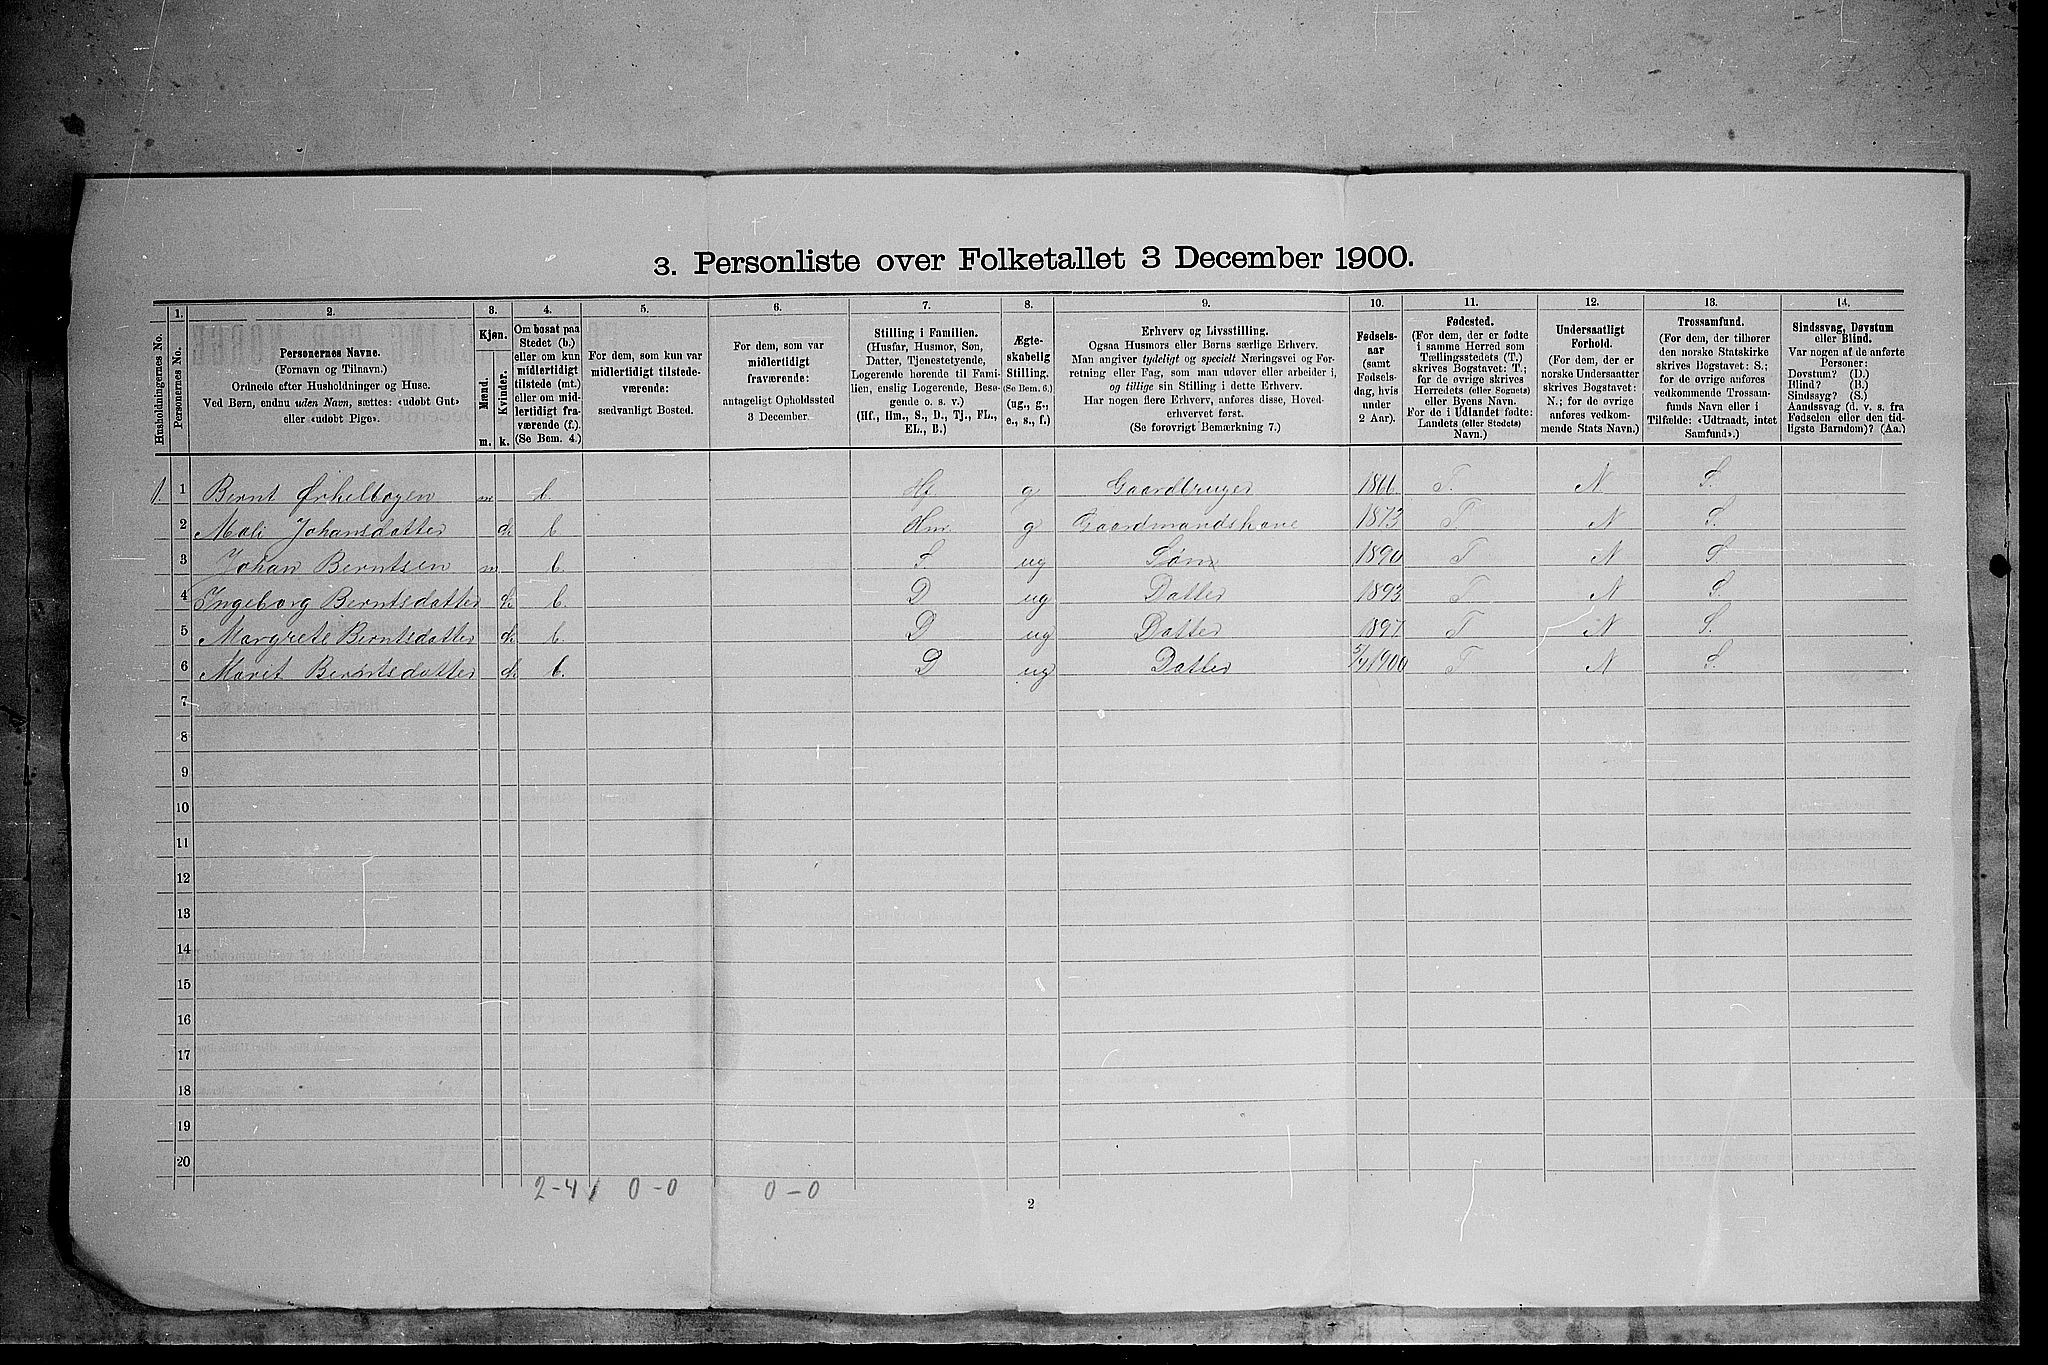 3. Personliste over Folketallet 3 December 1900.
Husholdningernes No.
1. Personernes No.
2. Personernes Navne. (Fornavn og Tilnavn.) Ordnede efter Husholdninger og Huse. Ved Børn, endnu uden Navn, sættes: «udobt Gut» eller «udobt Pige».
3. Kjøn. Mænd. m. Kvinder. k.
4. Om bosat paa Stedet (b.) eller om kun midlertidigt tilstede (mt.) eller om midlertidigt fraværende (f.). (Se Bem. 4.)
5. For dem, som kun var midlertidigt tilstedeværende: sædvanligt Bosted.
6. For dem, som var midlertidigt fraværende: antageligt Opholdssted 3 December.
7. Stilling i Familien. (Husfar, Husmor, Søn, Datter, Tjenestetyende, Logerende hørende til Familien, enslig Logerende, Besøgende o. s. v.) (Hf., Hm., S., D., Tj., FL., EL., B.)
8. Ægteskabelig Stilling. (Se Bem. 6.) (ug., g., e., s., f.)
9. Erhverv og Livsstilling. Ogsaa Husmors eller Børns særlige Erhverv. Man angiver tydeligt og specielt Næringsvei og Forretning eller Fag, som man udøver eller arbeider i, og tillige sin Stilling i dette Erhverv. Har nogen flere Erhverv, anføres disse, Hovederhvervet først. (Se forøvrigt Bemærkning 7.)
10. Fødselsaar (samt Fødselsdag, hvis under 2 Aar).
11. Fødested. (For dem, der er fødte i samme Herred som Tællingsstedets (T.) skrives Bogstavet: T.; for de øvrige skrives Herredets (eller Sognets) eller Byens Navn. For de i Udlandet fødte: Landets (eller Stedets) Navn.)
12. Undersaatligt Forhold. (For dem, der er norske Undersaatter skrives Bogstavet: N.; for de øvrige anføres vedkommende Stats Navn.)
13. Trossamfund. (For dem, der tilhører den norske Statskirke skrives Bogstavet: S.; for de øvrige anføres vedkommende Trossamfunds Navn eller i Tilfælde: «Udtraadt, intet Samfund».)
14. Sindssvag, Døvstum eller Blind. Var nogen af de anførte Personer: Døvstum? (D.) Blind? (B.) Sindssyg? (S.) Aandssvag (d. v. s. fra Fødselen eller den tidligste Barndom)? (Aa.)
1. 1 Bernt Ørkelbogen m b. Hf g Gaardbruger 1866 T. N S.
2 Mali Johansdatter k b Hm g Gaardmandskone 1873 T N S.
3 Johan Berntsen m b. S. ug Søn 1890 T N S
4 Ingeborg Berntsdatter k b. D ug Datter 1893 T. N S.
5 Margrete Berntsdatter k b. D ug Datter 1897 T N S.
6 Marit Berntsdatter k b. D ug Datter 1900 T N S.
7
8
9
10
11
12
13
14
15
16
17
18
19
20
2-4 0-0 0-0
2